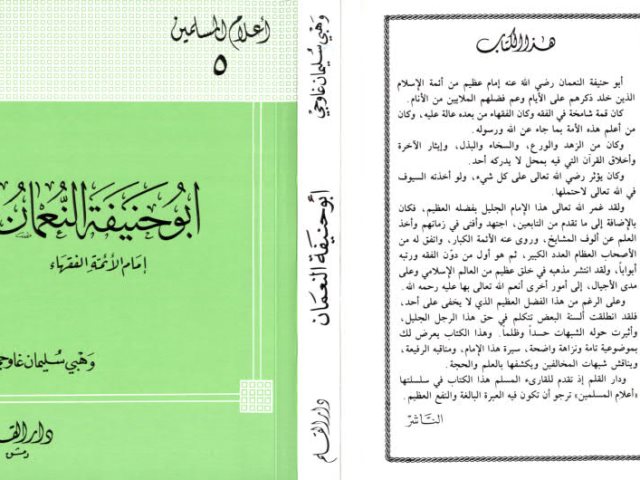 أعلام المسلمين
٥
أبو حنيفة النعمان
إمام الأئمة الفقهاء
وهبي سليمان غاوجي
دار القلم
دمشق
وهبي سليمان غاوجي
أبو حنيفة النعمان
دار القلم
هذا الكتاب
أبو حنيفة النعمان رضي الله عنه إمام عظيم من أئمة الإسلام
الذين خلد ذكرهم على الأيام وعم فضلهم الملايين من الأنام.
كان قمة شامخة في الفقه وكان الفقهاء من بعده عالة عليه، وكان
من أعلم هذه الأمة بما جاء عن الله ورسوله.
وكان من الزهد والورع، والسخاء والبذل، وإيثار الآخرة
وأخلاق القرآن التي فيه بمحل لا يدركه أحد.
وكان يؤثر رضي الله تعالى على كل شيء، ولو أخذته السيوف
في الله تعالى لاحتملها.
ولقد غمر الله تعالى هذا الإمام الجليل بفضله العظيم، فكان
بالإضافة إلى ما تقدم من التابعين، اجتهد وأفتى في زماتهم وأخذ
العلم عن ألوف المشايخ، وروى عنه الأئمة الكبار، واتفق له من
الأصحاب العظام العدد الكبير، ثم هو أول من دوّن الفقه ورتبه
أبواباً، ولقد انتشر مذهبه في خلق عظيم من العالم الإسلامي وعلى
مدى الأجيال، إلى أمور أخرى أنعم الله تعالى بها عليه رحمه الله.
وعلى الرغم من هذا الفضل العظيم الذي لا يخفى على أحد،
فلقد انطلقت ألسنة البعض تتكلم في حق هذا الرجل الجليل،
وأثيرت حوله الشبهات حسداً وظلماً. وهذا الكتاب يعرض لك
بموضوعية تامة ونزاهة واضحة، سيرة هذا الإمام، ومناقبه الرفيعة،
ويناقش شبهات المخالفين ويكشفها بالعلم والحجة.
ودار القلم إذ تقدم للقارىء المسلم هذا الكتاب في سلسلتها
«أعلام المسلمين» ترجو أن تكون فيه العبرة البالغة والنفع العظيم.
الناشر